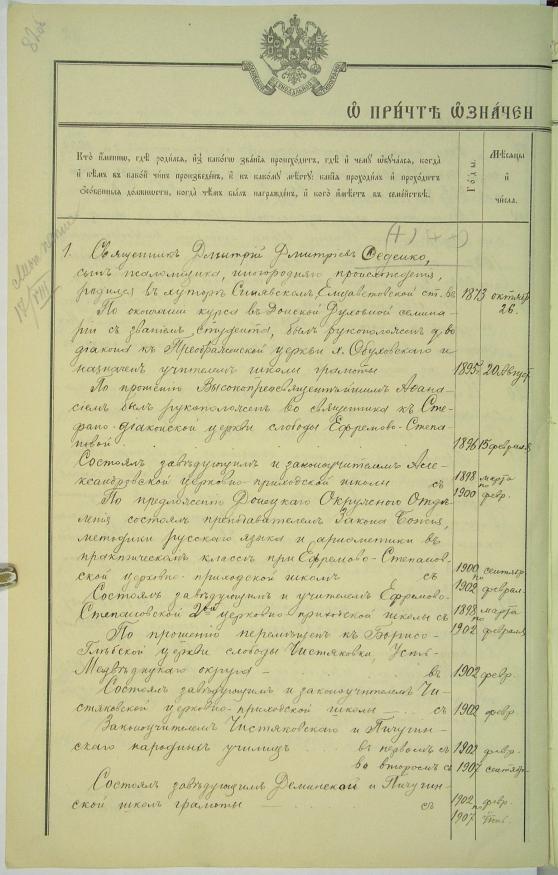 Ѡ ПРИ́ЧТѢ Ѡ҆ЗНА́ЧЕН
Кто и҆́менно, гдѣ̀ роди́лсѧ, и҆з̾ како́гѡ зва́нїѧ происхо́дитъ, гдѣ̀ и҆ чемꙋ̀ ѡ҆бꙋча́лсѧ, когда̀
и҆ кѣ́мъ въ како́й чи́нъ произведе́нъ, и҆ къ како́мꙋ мѣ́стꙋ; какі̑ѧ проходи́лъ и҆ прохо́дитъ
ѻ҆со́бенныѧ до́лжности, когда̀ чѣ́мъ бы́лъ награжде́нъ, и҆ кого̀ и҆мѣ́етъ въ семе́йствѣ.
Го́ды.
Мѣ́сѧцы
и҆
чи́сла.
1. Священникъ Дмитрій Дмитріевъ Феденко,
сынъ псаломщика, иногородняго происхожденія,
родился въ хуторѣ Синявскомъ, Елисаветовской ст. въ 1873 октябр
26.
По окончаніи курса въ Донской Духовной семина-
ріи съ званіемъ студента, былъ рукоположенъ во
діакона къ Преображенской церкви х. Обуховскаго и
назначенъ учителемъ школы грамоты 1895 20 Август
По прошенію Высокопреосвященнѣйшимъ Афана-
сіемъ былъ рукоположенъ во священника къ Сте-
фано-діаконской церкви слободы Ефремово-Степа-
новой 1896 15 февраля
Состоялъ завѣдующимъ и законоучителемъ Але-
ксандровской церковно-приходской школы съ 1898 марта
по
1900 февр.
По предложенію Донецкаго Окружнаго Отдѣ-
ленія состоялъ преподавателемъ Закона Божія,
методики русскаго языка и ариѳметики въ
практическомъ классѣ при Ефремово-Степанов-
ской церковно-приходской школѣ съ 1900 сентябр
по
1902 феврал.
Состоялъ завѣдующимъ и учителемъ Ефремово-
Степановской 2ой церковно-приходской школы съ 1898 марта
по
1902 февраля
По прошенію перемѣщенъ къ Борисо-
Глѣбской церкви слободы Чистяковки Усть-
Медвѣдицкаго округа въ 1902 февр.
Состоялъ завѣдующимъ и законоучителемъ Чи-
стяковской церковно-приходской школы съ 1902 февр
Законоучителемъ Чистяковскаго и Пичугин-
скаго народныхъ училищъ въ первомъ съ 1902 февр.
во второмъ съ 1907 сентябр.
Состоялъ завѣдующимъ Деминской и Пичугин-
ской школъ грамоты съ 1902 февр.
по
1907